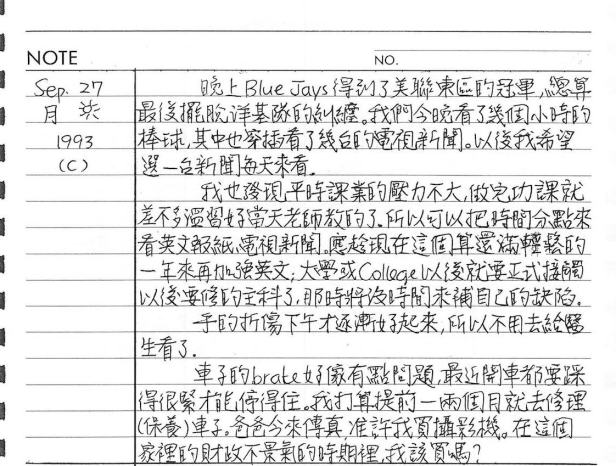 NOTE NO.
Sep. 27 晚上Blue Jays得到了美聯東區的冠軍,總算
月 最後擺脫洋基隊的糾纏。我們今晚看了幾個小時的
1993 棒球,其中也穿插看了幾台的電視新聞。以後我希望
(C) 選一台新聞每天來看.
我也發現,平時課業的壓力不大,做完功課就
差不多溫習好當天老師教的了.所以可以把時間分點來
看英文報紙、電視新聞.應趁現在這個算還滿輕鬆的
一年來再加強英文,大學或Collage以後就要正式接觸
以後要修的主科了,那時將沒時間來補自己的缺陷.
手的折傷下午才逐漸好起來,所以不用去給醫
生看了.
車子的brate好像有點問題,最近開車都要踩
得很緊才能停得住。我打算提前一兩個月就去修理
(保養)車子。爸爸今來傳真,准許我買攝影機。在這個
家裡的財政不景氣的時期裡,我該買嗎?